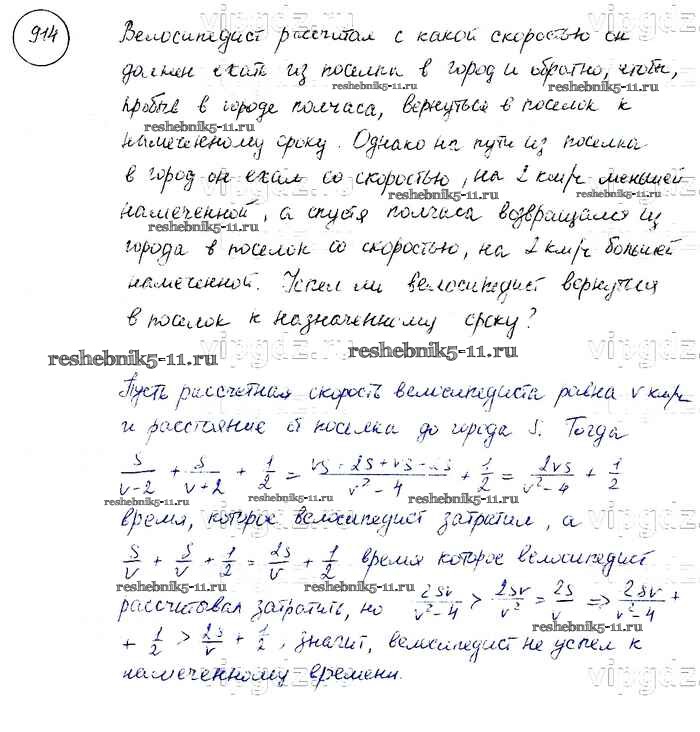 914
Велосипедист рассчитал с какой скоростью он
должен ехать из поселка в город и обратно, чтобы,
пробыв в городе полчаса, вернуться в поселок к
reshebnik5-11.ru
намеченному сроку. Однако на пути из поселка
в город он ехал со скоростью, на 2 км/ч меньшей
reshebnik5-11.ru
намеченной, а спустя полчаса возвращался из
города в поселок со скоростью, на 2 км/ч большей
намеченной. Успел ли велосипедист вернуться
в поселок к назначенному сроку?
reshebnik5-11.ru reshebnik5-11.ru
Пусть рассчетная скорость велосипедиста равна v км/ч
и расстояние от поселка до города S. Тогда
S/(v-2) + S/(v+2) + 1/2 = (vS+2S+vS-2S)/(v²-4) + 1/2 = 2vS/(v²-4) + 1/2
reshebnik5-11.ru reshebnik5-11.ru
время, которое велосипедист затратил, а
S/v + S/v + 1/2 = 2S/v + 1/2 время которое велосипедист
reshebnik5-11.ru
рассчитывал затратить, но 2Sv/(v²-4) > 2Sv/v² = 2S/v ⇒ 2Sv/(v²-4) +
+ 1/2 > 2S/v + 1/2, значит, велосипедист не успел к
reshebnik5-11.ru reshebnik5-11.ru
намеченному времени.
vipgdz.ru